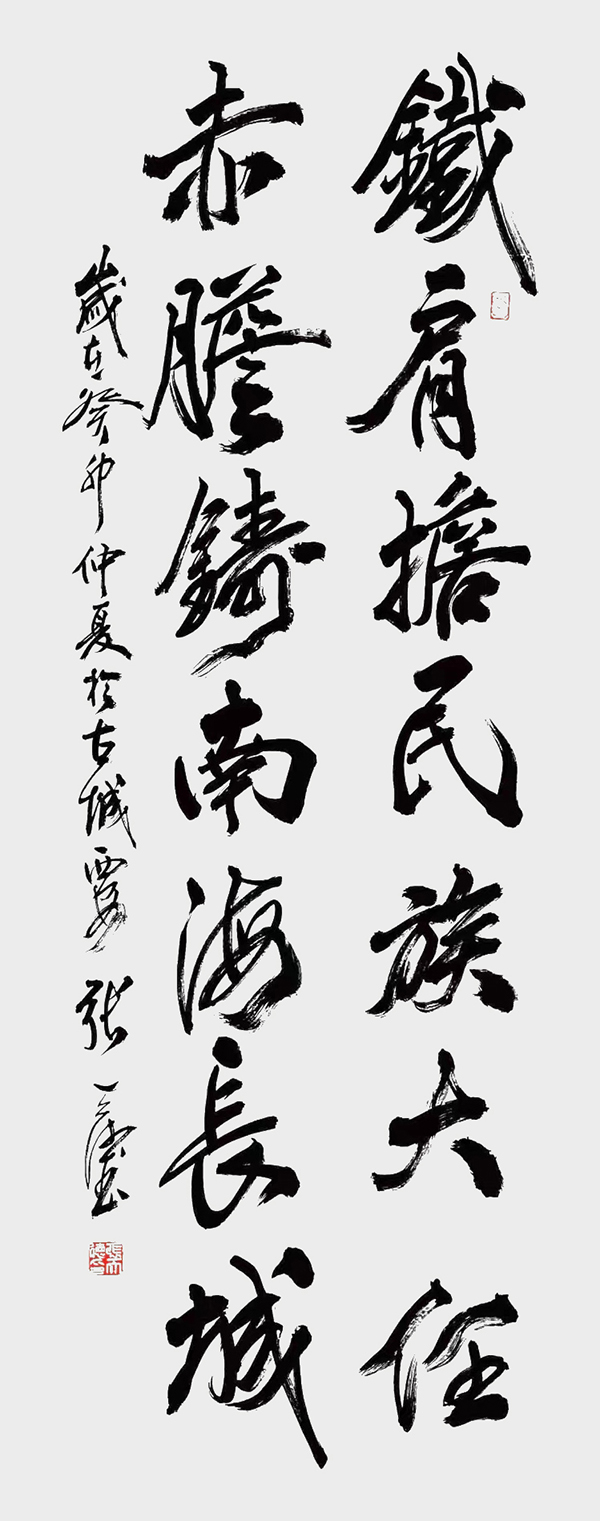 鐵肩擔民族大任
赤膽鑄南海長城
歲在癸卯仲夏於古城張